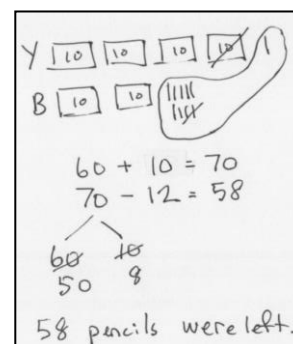 Y 10 10 10 10 |
B 10 10 |||||  |||||
60 + 10 = 70
70 - 12 = 58
60 10
50 8
58 pencils were left.